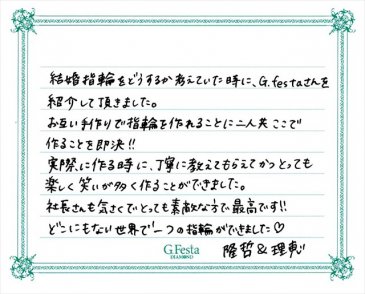 結婚指輪をどうするか考えていた時に、G.festaさんを
紹介して頂きました。
お互い手作りで指輪を作れることに二人共ここで
作ることを即決!!
実際に作る時に、丁寧に教えてもらえてかつとっても
楽しく笑いが多く作ることができました。
社長さんも気さくでとっても素敵な方で最高です!!
どこにもない世界で一つの指輪ができました♡
隆哲&理恵
G.Festa
DIAMOND